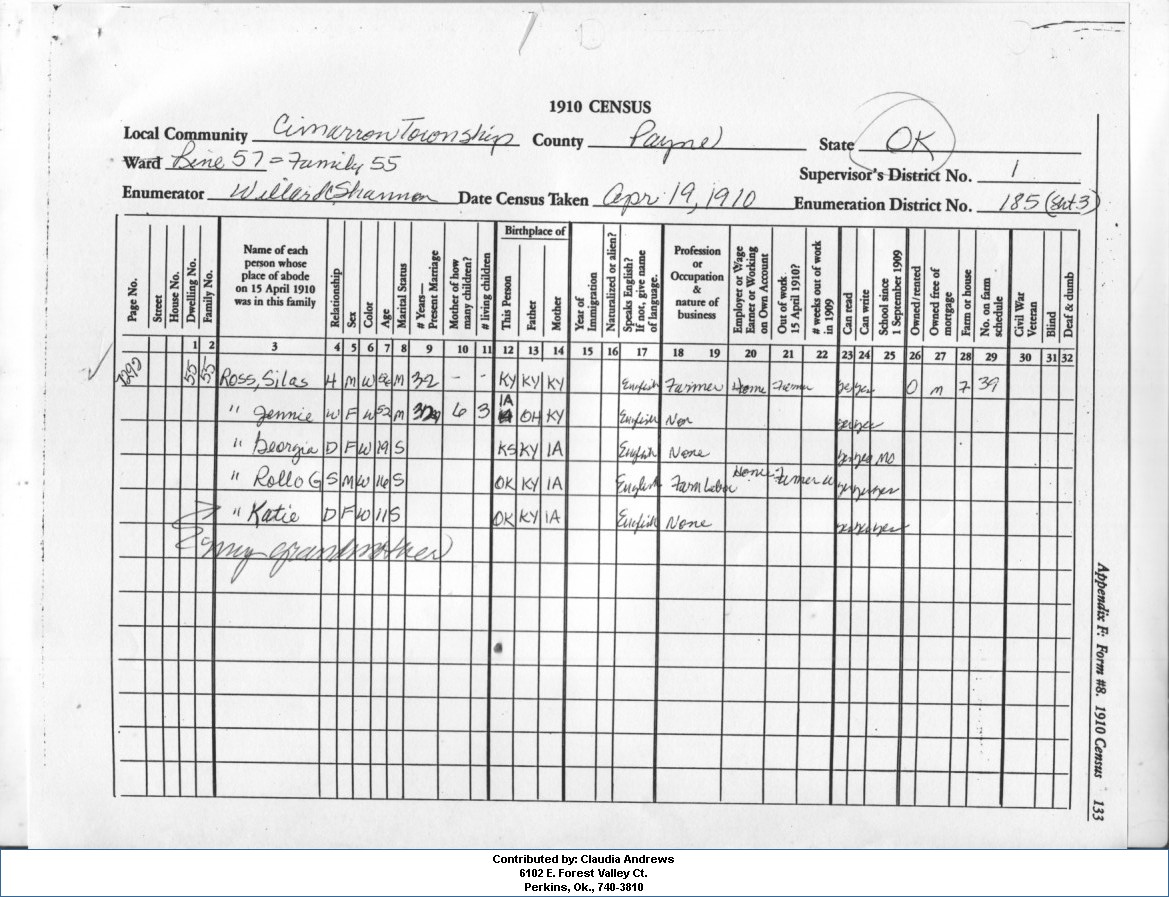 1910 CENSUS
Local Community Cimarron Township County Payne State OK
Ward Line 57 = Family 55
Supervisor's District No. 1
Enumerator Willard Shannon Date Census Taken Apr 19, 1910 Enumeration District No. 185 (Sht 3)
Page No. Street House No. Dwelling No. Family No. Name of each person whose place of abode on 15 April 1910 was in this family Relationship Sex Color Age Marital Status # Years— Present Marriage Mother of how many children? # living children Birthplace of This Person Father Mother Year of Immigration Naturalized or alien? Speaks English? If not, give name of language. Profession or Occupation & nature of business Employer or Wage Earner or Working on Own Account Out of work 15 April 1910? # weeks out of work in 1909 Can read Can write School since 1 September 1909 Owned/rented Owned free of mortgage Farm or house No. on farm schedule Civil War Veteran Blind Deaf & dumb
1 2 3 4 5 6 7 8 9 10 11 12 13 14 15 16 17 18 19 20 21 22 23 24 25 26 27 28 29 30 31 32
55 55 Ross, Silas H M W M 32 - - KY KY KY English Farmer Home Farmer yes yes O m 7 39
" Jennie W F W 52 M 6 3 IA OH KY English Non yes yes
" Georgia D F W 19 S KS KY IA English None yes yes no
" Rollo G S M W 16 S OK KY IA English Farm Labor Home yes yes yes
" Katie D F W 11 S OK KY IA English None yes yes yes
my grandmother
Appendix F: Form #8. 1910 Census 133
Contributed by: Claudia Andrews
6102 E. Forest Valley Ct.
Perkins, Ok., 740-3810